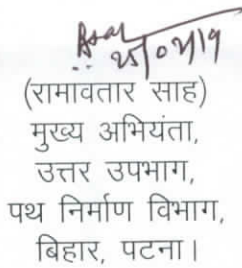 (रामावतार साह)
मुख्य अभियंता,
उत्तर उपभाग,
पथ निर्माण विभाग,
बिहार, पटना।